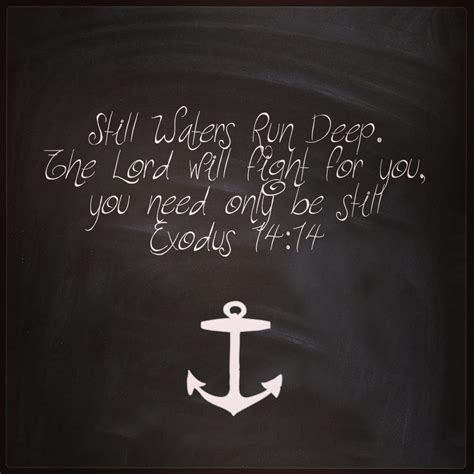 Still Waters Run Deep.
The Lord will fight for you,
you need only be still
Exodus 14:14